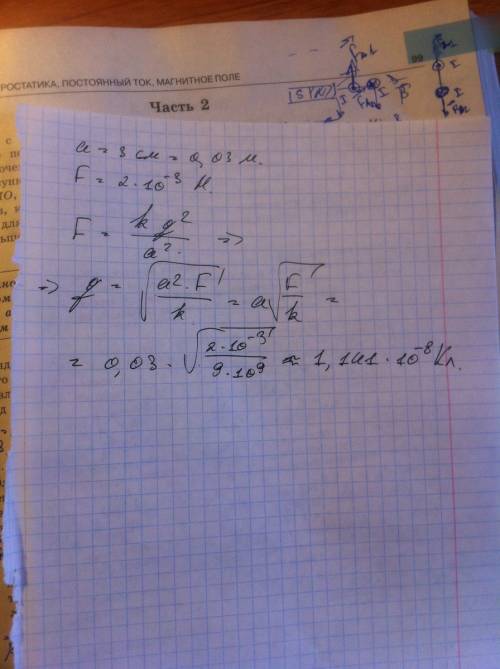 99
РОСТАТИКА, ПОСТОЯННЫЙ ТОК, МАГНИТНОЕ ПОЛЕ
Часть 2
a = 3 см = 0,03 м.
F = 2·10⁻³ Н.
F = k q² / a² ⇒
⇒ q = √(a²·F / k) = a√(F / k) =
= 0,03 · √(2·10⁻³ / 9·10⁹) ≈ 1,141·10⁻⁸ Кл.